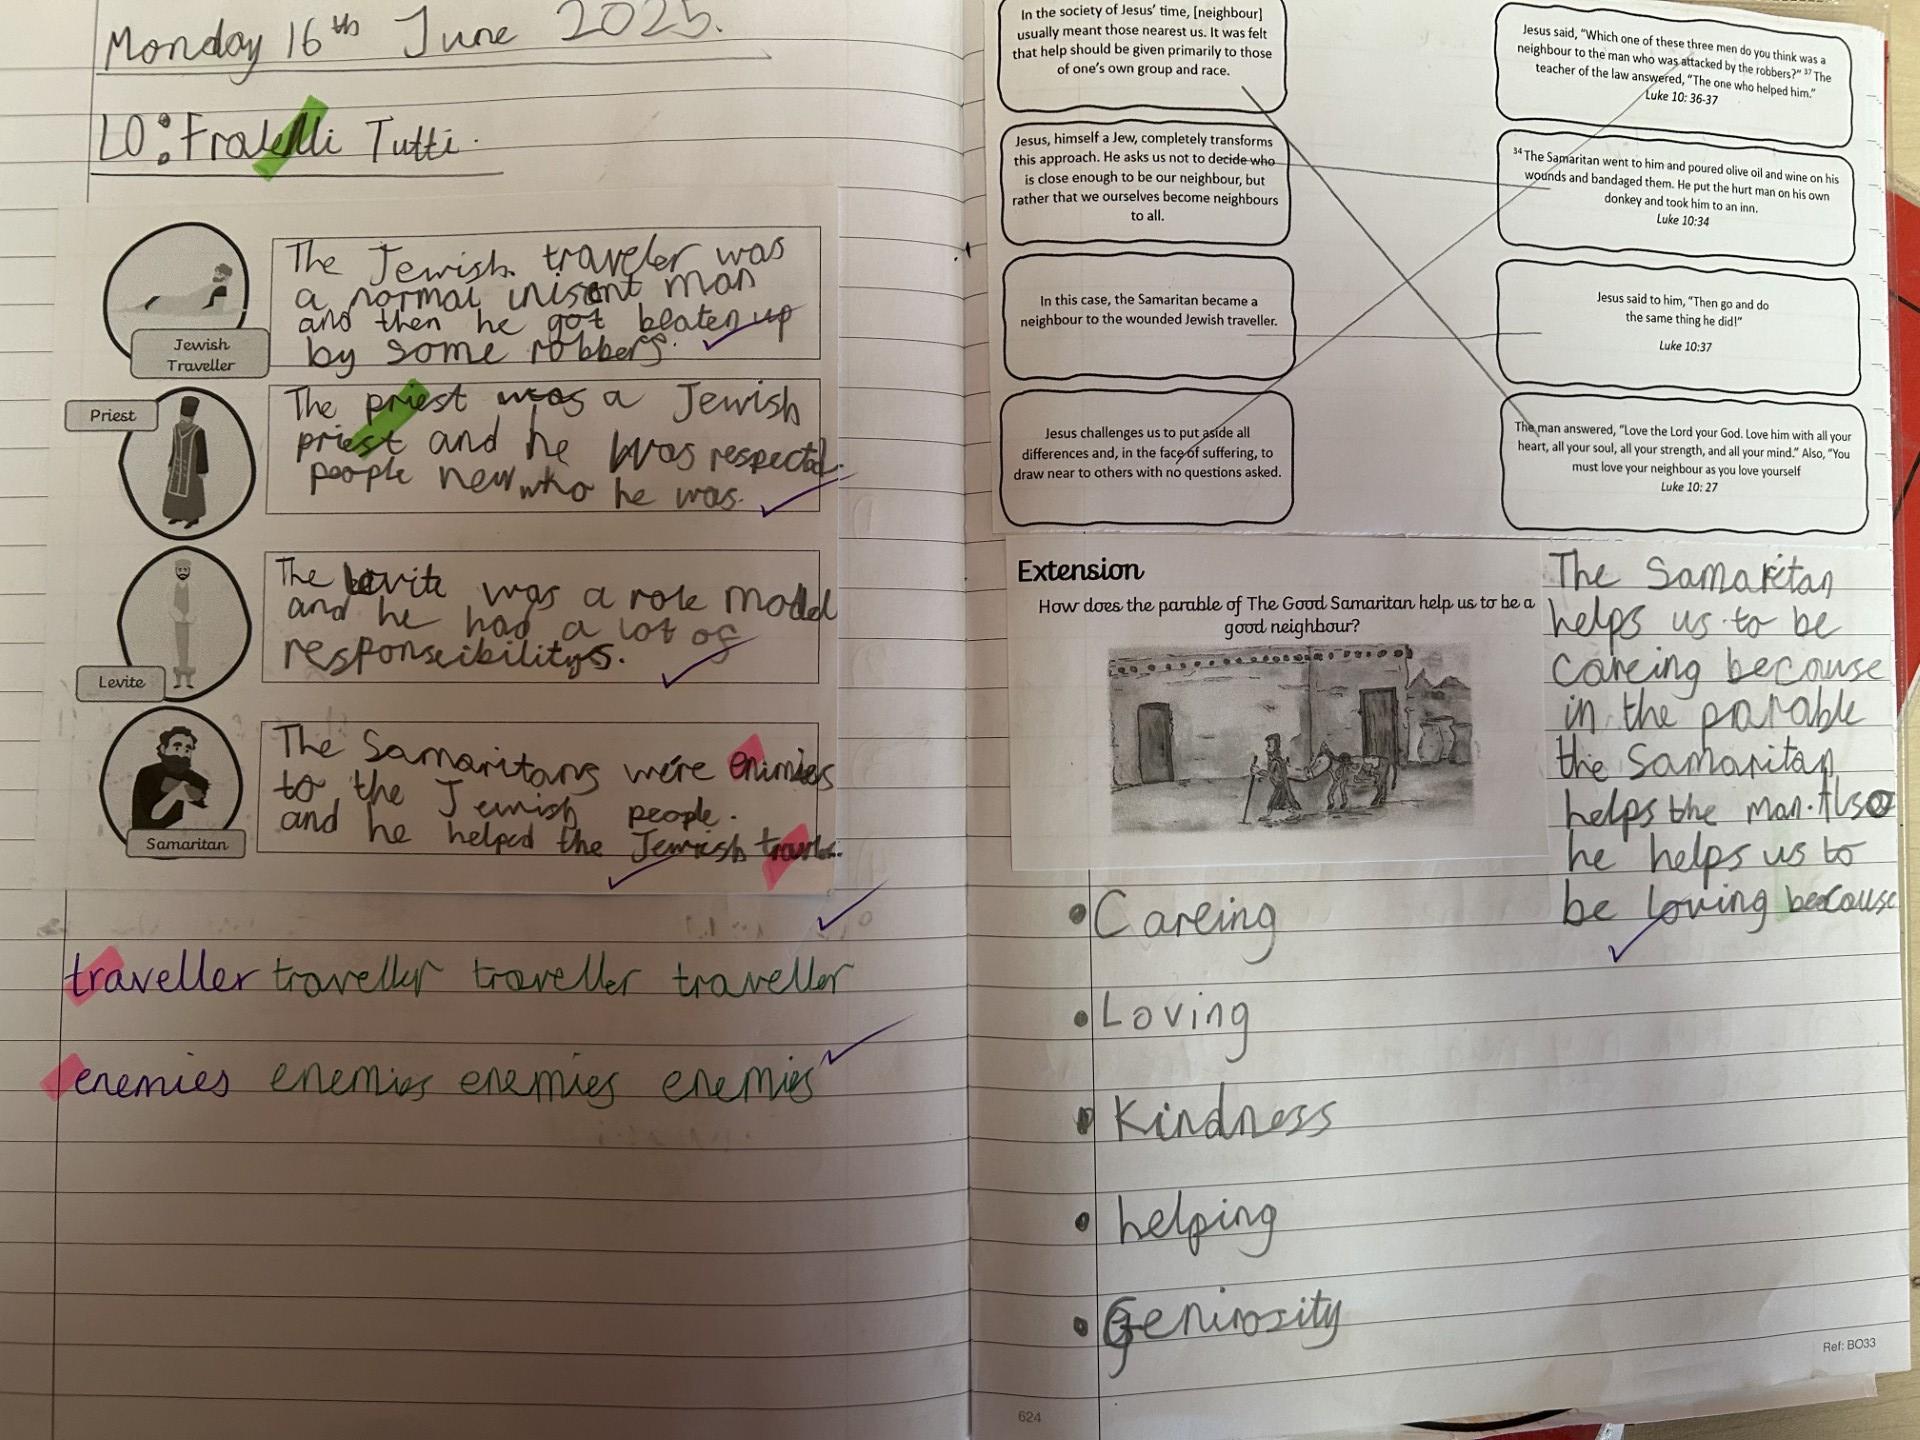 Monday 16th June 2025.
LO: Fratelli Tutti.
Jewish
Traveller
The Jewish traveler was
a normal inisent man
and then he got beaten up
by some robbers.
Priest
The priest was a Jewish
priest and he was respectd.
people new who he was.
Levite
The levite was a role model
and he had a lot of
responseibilitys.
Samaritan
The Samaritans were enimies
to the Jewish people.
and he helped the Jewish
traveller traveller traveller traveller
enemies enemies enemies enemies
In the society of Jesus' time, [neighbour]
usually meant those nearest us. It was felt
that help should be given primarily to those
of one's own group and race.
Jesus, himself a Jew, completely transforms
this approach. He asks us not to decide who
is close enough to be our neighbour, but
rather that we ourselves become neighbours
to all.
In this case, the Samaritan became a
neighbour to the wounded Jewish traveller.
Jesus challenges us to put aside all
differences and, in the face of suffering, to
draw near to others with no questions asked.
Jesus said, "Which one of these three men do you think was a
neighbour to the man who was attacked by the robbers?" 37 The
teacher of the law answered, "The one who helped him."
Luke 10: 36-37
34 The Samaritan went to him and poured olive oil and wine on his
wounds and bandaged them. He put the hurt man on his own
donkey and took him to an inn.
Luke 10:34
Jesus said to him, "Then go and do
the same thing he did!"
Luke 10:37
The man answered, "Love the Lord your God. Love him with all your
heart, all your soul, all your strength, and all your mind." Also, "You
must love your neighbour as you love yourself
Luke 10: 27
Extension
How does the parable of The Good Samaritan help us to be a
good neighbour?
The Samaritan
helps us to be
careing becouse
in the parable
the Samaritan
helps the man. Also
he helps us to
be loving becouse
Careing
Loving
Kindness
helping
Genirosity
Ref: BO33
624